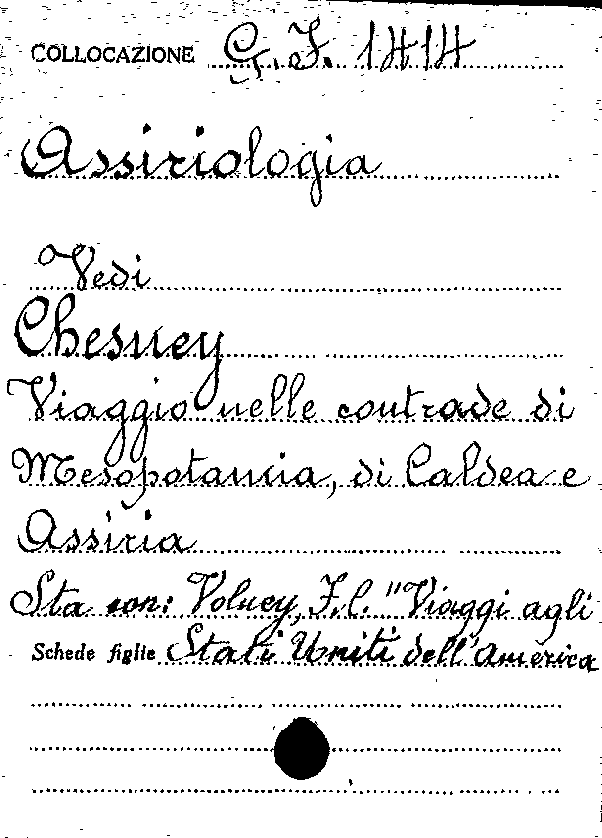 COLLOCAZIONE G. I. 1414
Assiriologia
Vedi
Chesney
Viaggio nelle contrade di
Mesopotamia, di Caldea e
Assiria
Sta con: Volney, F.C. "Viaggi agli
Schede figlie Stati Uniti dell'America